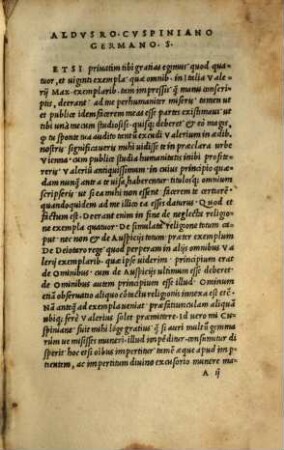 ALDVS RO. CVSPINIANO
GERMANO. S.
ETSI priuatim tibi gratias egimus quod qua-
tuor, et uiginti exempla quæ omnib. in Italia Vale-
rij Max. exemplarib. tam impressis quàm manu conscri-
ptis, deerant ad me perhumaniter miseris tamen ut
et publice idem facerem meas esse partes existimaui ut
tibi unà mecum studiosi quiq; deberet & eò magis,
q tu sponte tua audito tentum excudi Valerium in ædib.
nostris significaueris mihi uidisse te in præclara urbe
Vienna cum publice studia humanitatis inibi profite-
reris Valerium antiquissimum in cuius principio quæ-
dam nunquã ante a te uisa, haberentur titulosq; omnium
scripseris ut si ea mihi non essent facerem te certiorẽ
quandoquidem ad me illico ea esses daturus Quod et
factum est. Deerant enim in fine de neglecta religione
exempla quatuor De simulata religione totum ca-
put nec non & de Auspicijs totum præter exemplum
De Deiotaro rege quod perperam in alijs omnibus Va-
lerij exemplarib. quæ ipse uiderim principium erat
de Ominibus cum de Auspicijs ultimum esse deberet
de Ominibus autem principium esse illud Ominum
etiã obseruatio aliquo cõtactu religioni innexa est etc̃.
Nã anteq̃ ad exempla ueniat præfatiunculam aliquã
ubiq; ferè Valerius solet præmittere. Id uero mi Cu-
spiniane fuit mihi lõge gratius q̃ si auri multũ gemma
rum ue misisses muneri illud impẽditur consumitur di
sperit hoc etsi omnibus impertitur tamẽ æque apud im p
tientem, ac impertitum diuino excusorio munere ma-
A ij